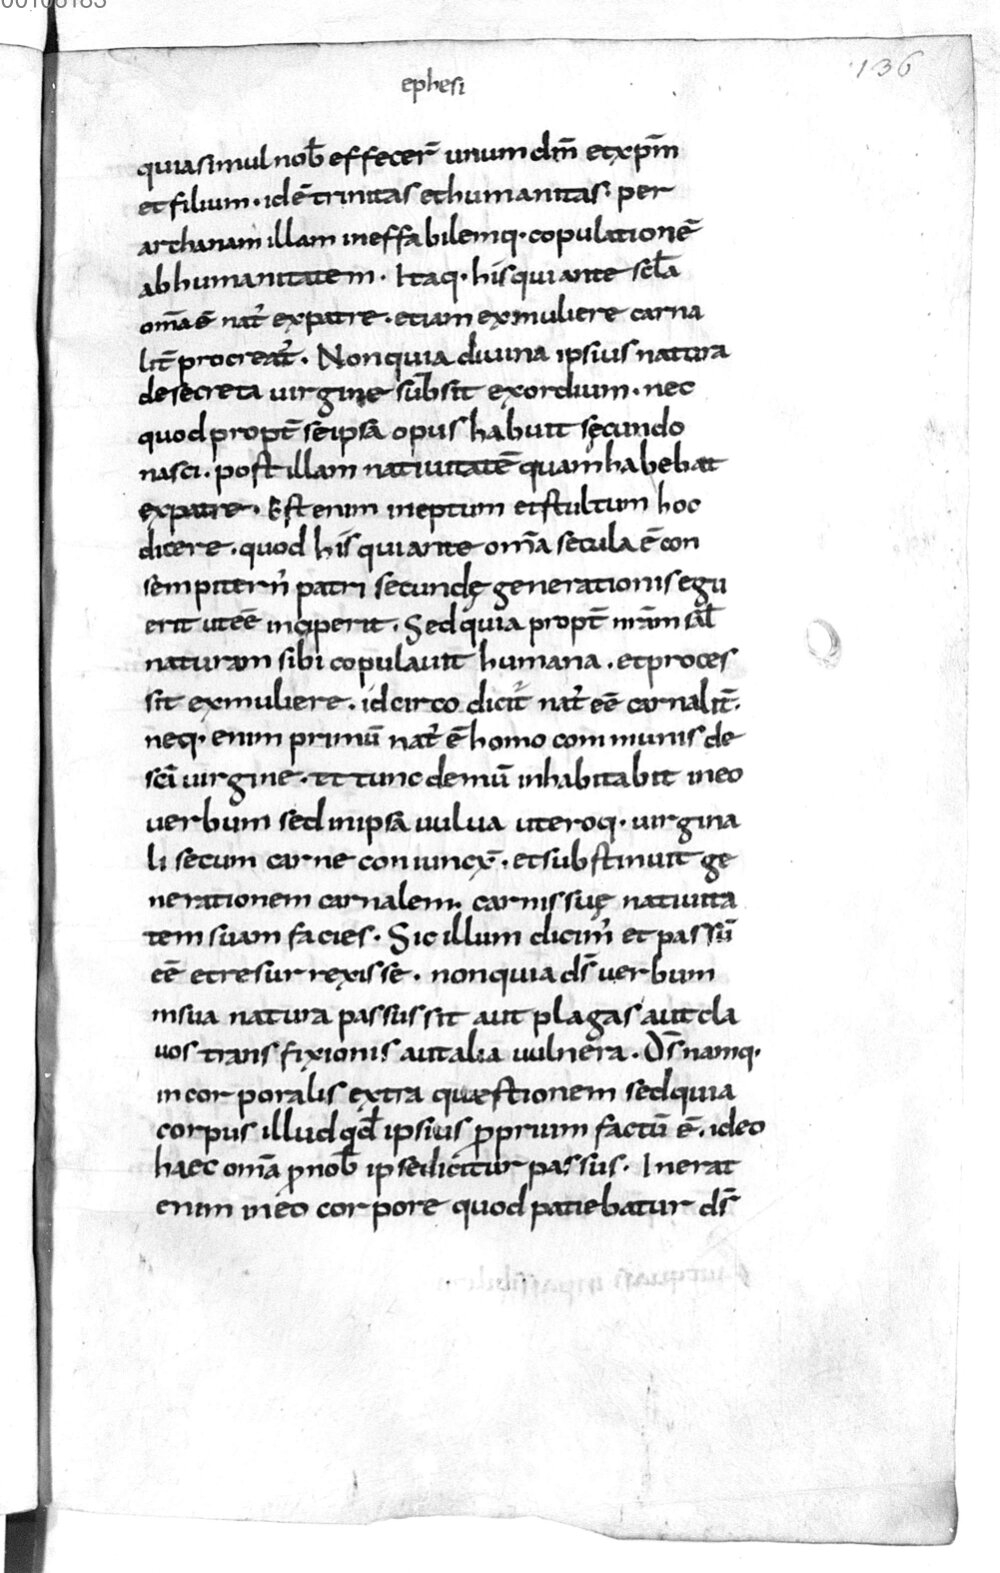 00106183
136
ephesi
quia simul nob̄ effecer̄ unum dm̄ et xp̄m
et filium · idē trinitas et humanitas · per
archanam illam ineffabilemq· copulationē
ab humanitatem · Itaq· his qui ante scl̄a
om̄a ē nat' ex patre · etiam ex muliere carna
lit̄ procreat' · Non quia diuina ipsius natura
de secreta uirgine sūbsit exordium · nec
quod propt̄ seipsā opus habuit secundo
nasci · post illam natiuitatē quam habebat
ex patre · Est enim ineptum et stultum hoc
dicere · quod his qui ante om̄a secula ē con
sempitern' patri secundę generationis egu
erit ut eē inciperit · Sed quia propt̄ nr̄am sal̄
naturam sibi copulauit humana · et proces
sit ex muliere · idcirco dicit' nat' eē carnalit̄ ·
neq· enim primū nat' ē homo communis de
scā uirgine · et tunc demū inhabitabit in eo
uerbum sed in ipsa uulua uteroq· uirgina
li secum carne coniuncx̄ · et substinuit ge
nerationem carnalem · carnis suę natiuita
tem suam facies · Sic illum dicim' et passū
eē et resurrexisse · non quia ds̄ uerbum
in sua natura passus sit aut plagas aut cla
uos transfixionis aut alia uulnera · Ds̄ namq·
incorporalis extra quæstionem sed quia
corpus illud qd̄ ipsius ꝓprium factū ē · ideo
haec om̄a ꝓ nob̄ ipse dicitur passus · Inerat
enim in eo corpore quod patiebatur ds̄